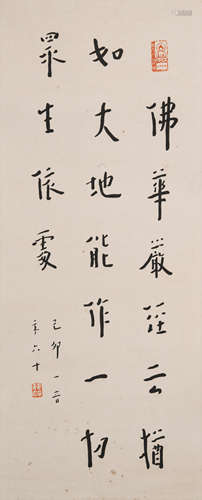 佛華嚴經云猶
如大地能作一切
眾生依處
己卯一音
年六十